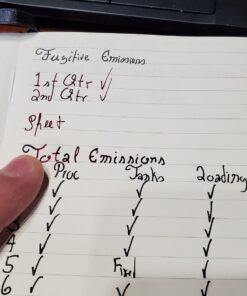 Fugitive Emissions
1st Qtr ✓
2nd Qtr ✓
Sheet
Total Emissions
Proc Tanks Loading
✓ ✓ ✓
✓ ✓ ✓
3 ✓ ✓ ✓
4 ✓ ✓ ✓
5 ✓ ✓
6 ✓ ✓ ✓